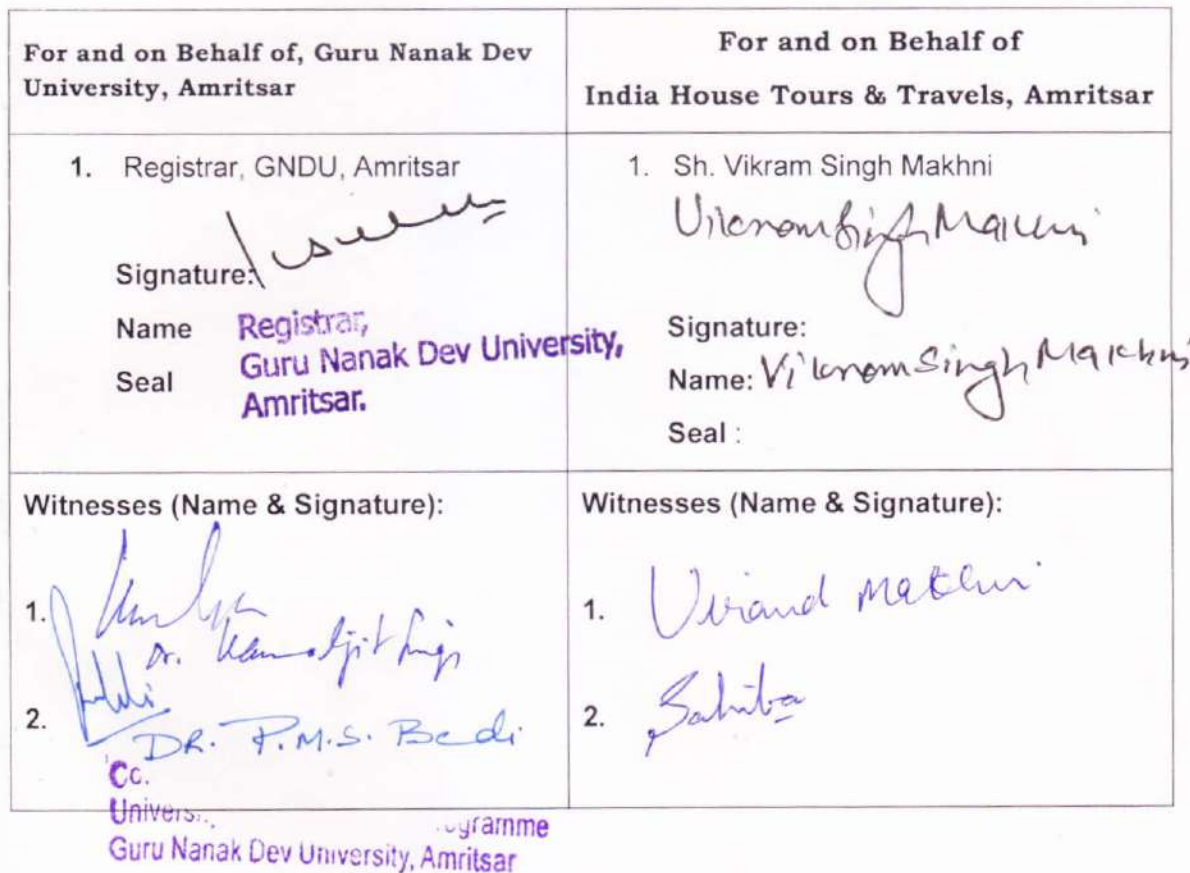 For and on Behalf of, Guru Nanak Dev
University, Amritsar
For and on Behalf of
India House Tours & Travels, Amritsar
1. Registrar, GNDU, Amritsar
Signature:
Name
Seal
Registrar,
Guru Nanak Dev University,
Amritsar.
1. Sh. Vikram Singh Makhni
Vikram Singh Makhni
Signature:
Name: Vikram Singh Makhni
Seal :
Witnesses (Name & Signature):
1.
Dr. Kamaljit Singh
2.
DR. P.M.S. Bedi
Guru Nanak Dev University, Amritsar
Witnesses (Name & Signature):
1. Makhni
2. Sahiba